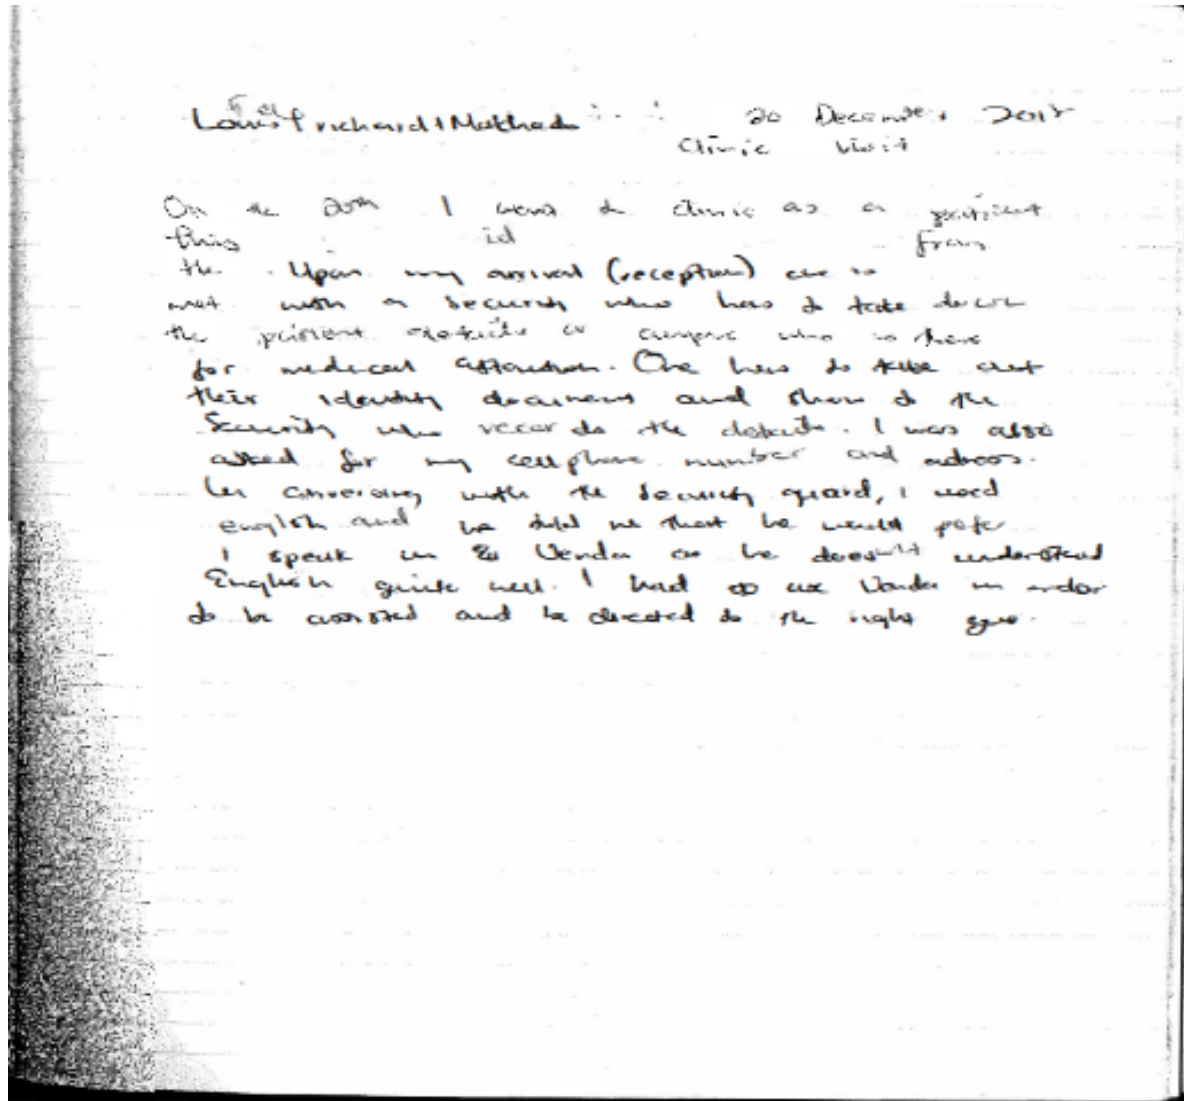 Louis Trichardt Makhado 20 December 2017
Clinic Visit
On the 20th I went to clinic as a patient
this id from
the . Upon my arrival (reception) one is
met with a security who has to take down
the patient details or anyone who is there
for medical attention. One has to take out
their identity document and show to the
Security who records the details. I was also
asked for my cellphone number and address.
In conversing with the security guard, I used
english and he told me that he would prefer
I speak in Venda as he doesn't understand
English quite well. I had to use Venda in order
to be assisted and be directed to the right